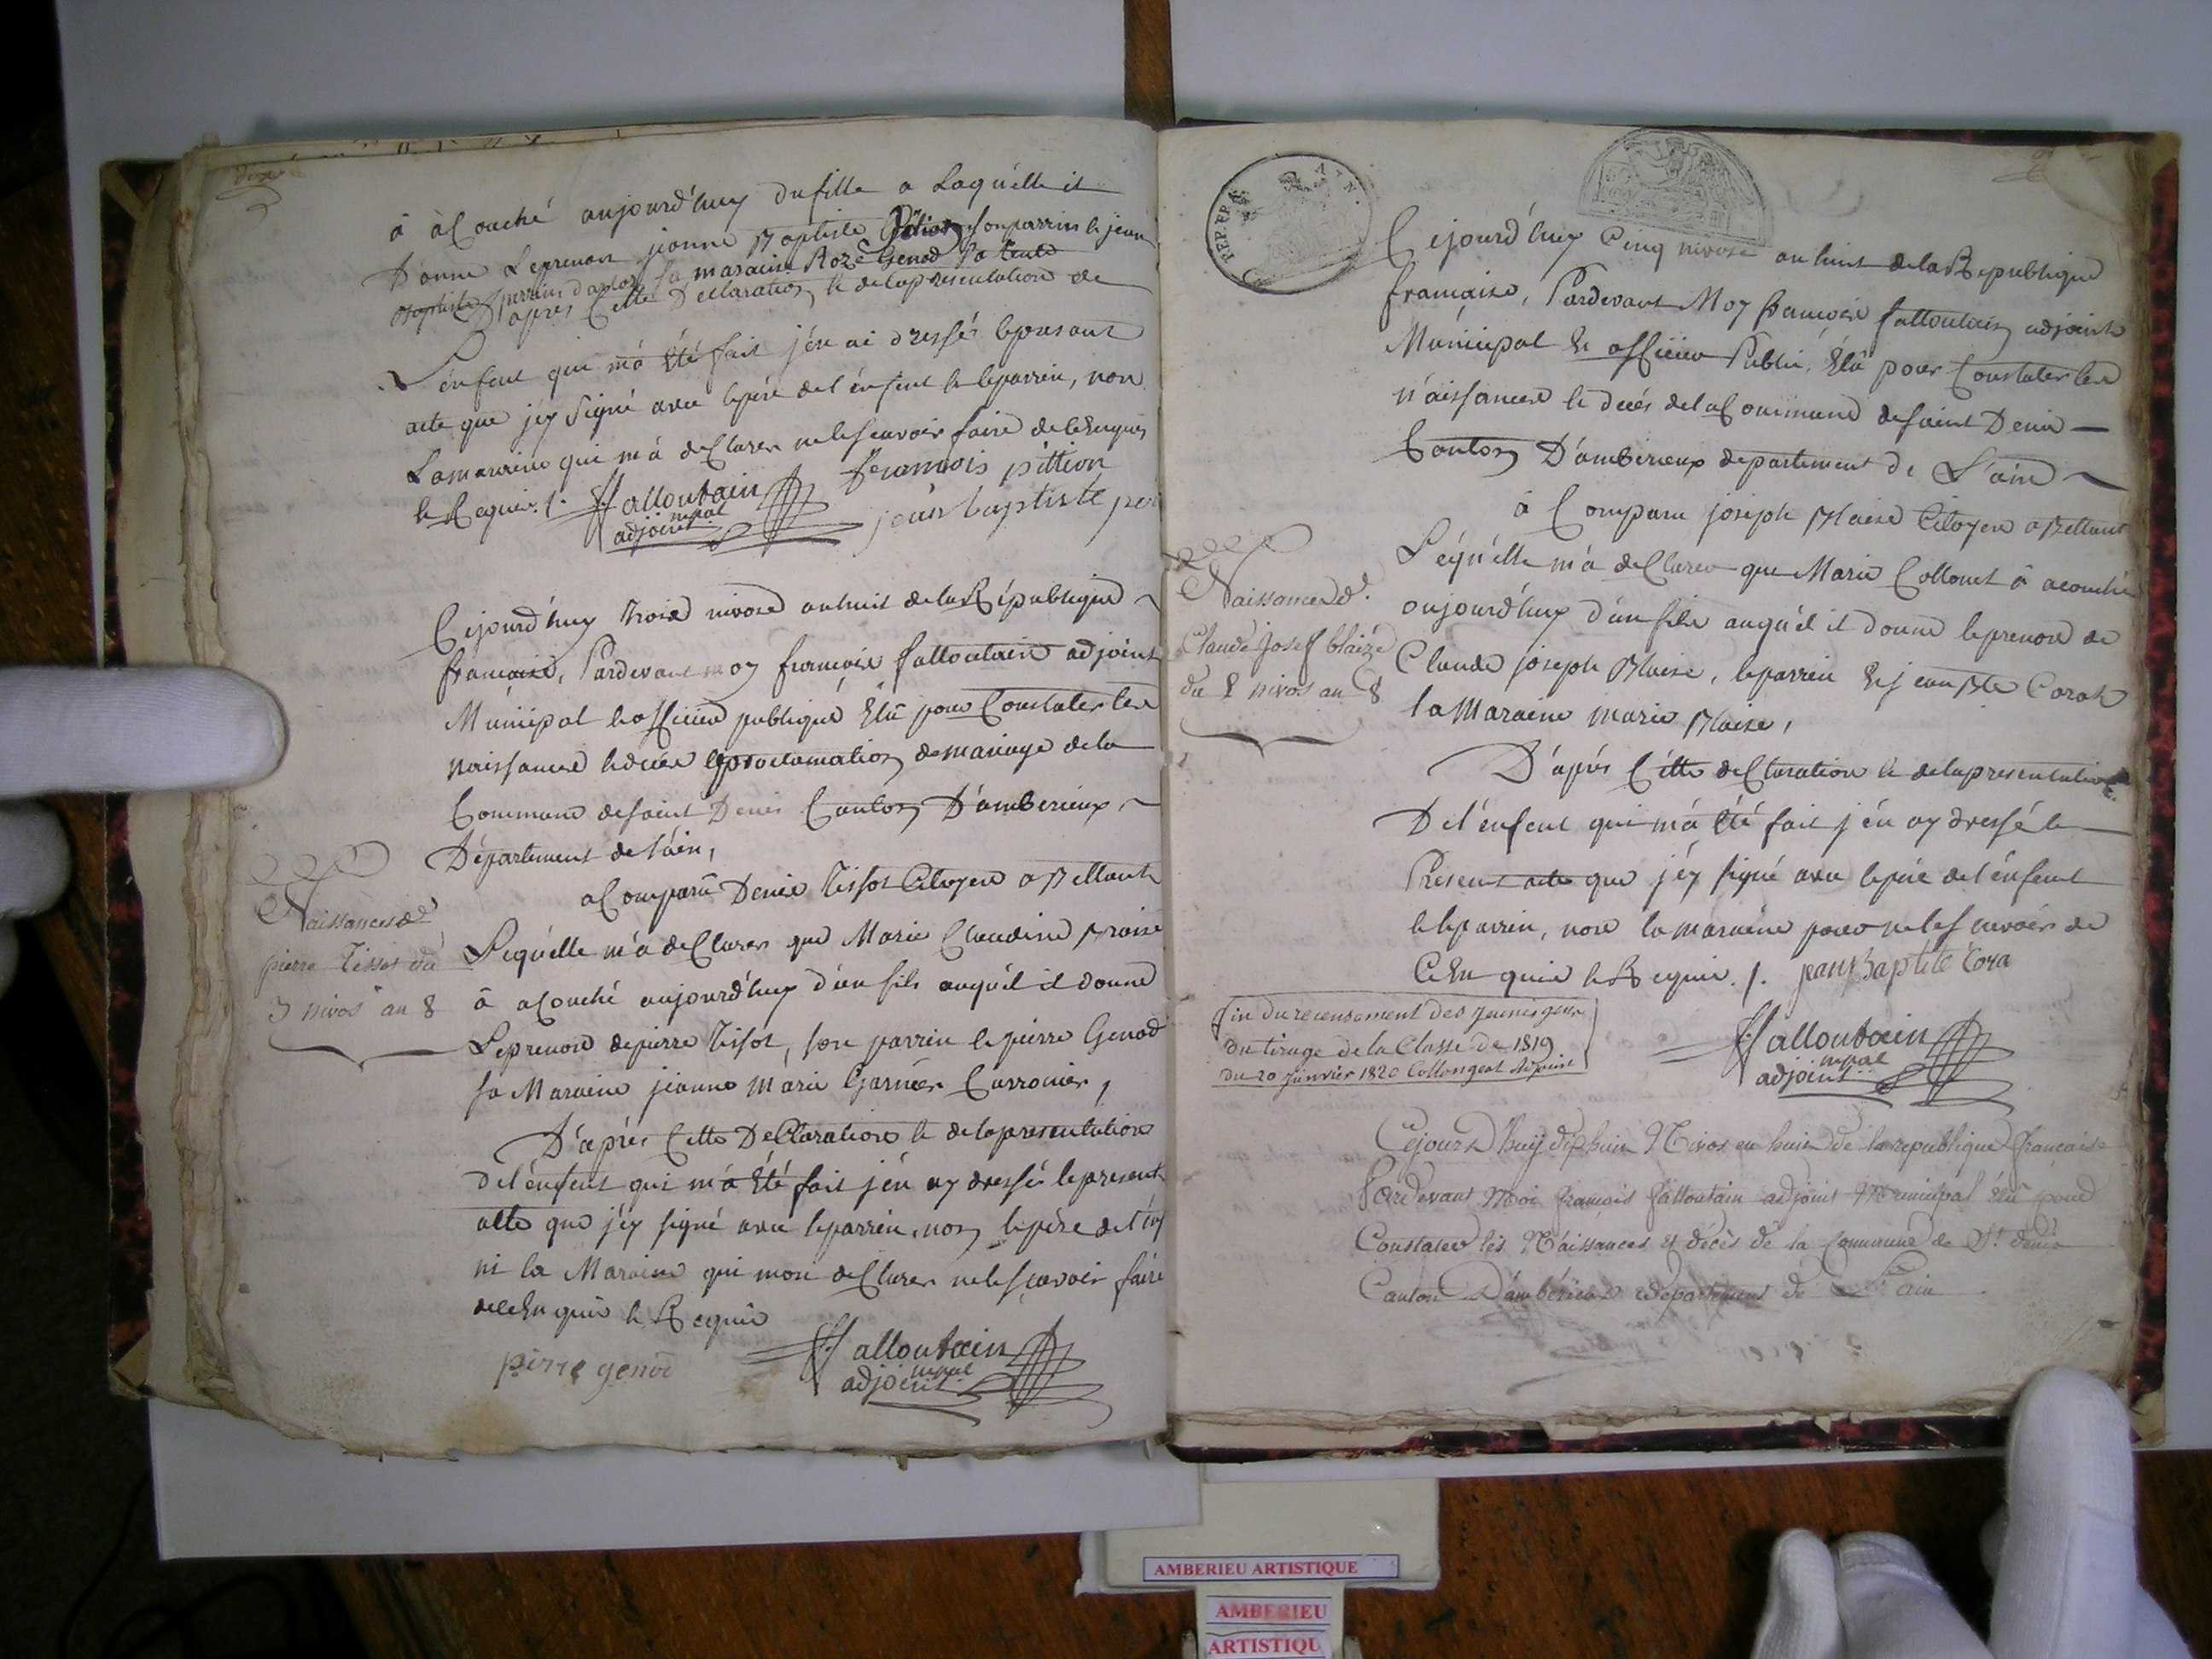 dix
à acouché aujourd'huy du fille a Laquelle il
Donne Leprenon jeanne Baptiste Pition, son parrin e jean
Baptiste perrin d'aplos sa maraine Roze Genod sa tente
après Cette Declaration e de la presentation de
L'énfent qui m'à été fait j'én ai dressé le present
acte que j'ey Signé avec le pére de l'énfent e le parrin, non
La marrine qui m'à déClaré ne le scavoir faire de ce enquis
e Requis ./. ffalloutain françois pittion
adjoint mpal jean baptiste per
Cejourd'huy trois nivose an huit de la République
française, Pardevant moy françois falloutain adjoint
Municipal e officier publique élû pour Constater les
naissances e décés e proclamation de mariage de la
Commune de saint Denis Canton D'amberieux
Département de l'ain,
a Comparû Denis tissot Citoyen a Bettant
Lequelle m'à déClaré que Marie Claudine
à acouché aujourd'huy d'un fils auquél il donne
Leprenon de pierre tissot, son parrin e pierre Genod
sa Maraine jeanne marie Garnier Carronier,
D'après Cette DeClaration e de la presentation
de l'énfent qui m'à été fait j'én ay dressé le present
atte que j'éy signé avec le parrin, non le pére de l'enf
ni la Maraine qui mon déClaré ne le sçavoir faire
de ce enquis e Requis
pierre genod ffalloutain
adjoint mpal
Naissances de
pierre tissot du
3 nivos an 8
REP. FRA. AIN
Cejourd'huy Cinq nivose an huit de la Republique
française, Pardevant Moy françois falloutain adjoint
Municipal e officier Public, élû pour Constater les
n'aissances e decés de la Commune de saint Denis
Canton D'amberieux departement de L'ain
à Comparu joseph Blaise Citoyen a Bettant
Lequélle m'à déClaré que Marie Collonet à acouché
aujourd'huy d'un fils auquél il donne le prenon de
Claude joseph Blaise, le parrin e jean Bte Corat
la Maraine marie Blaise,
D'après Cétte déClaration e de la presentation
De l'énfent qui m'à été fait j'én ay dressé le
Present acte que j'éy signé avec le pére de l'énfent
e le parrin, non la maraine pour ne le scavoir de
Ce enquis e Requis ./. jean Baptite Cora
ffalloutain
adjoint mpal
Naissance de
Claude Josef blaize
du 5 nivos an 8
fin du recensement des jeunes gens
du tirage de la Classe de 1819
du 20 janvier 1820 Collongeat Adjoint
Cejourd'huij dixhuit Nivos en huit de la republique francaise
Pardevant Moi francois falloutain adjoint Municipal élu pour
Constater les Naissances et décès de la Commune de St denis
Canton D'ambérieux département de L'ain
AMBERIEU ARTISTIQUE
AMBERIEU
ARTISTIQU